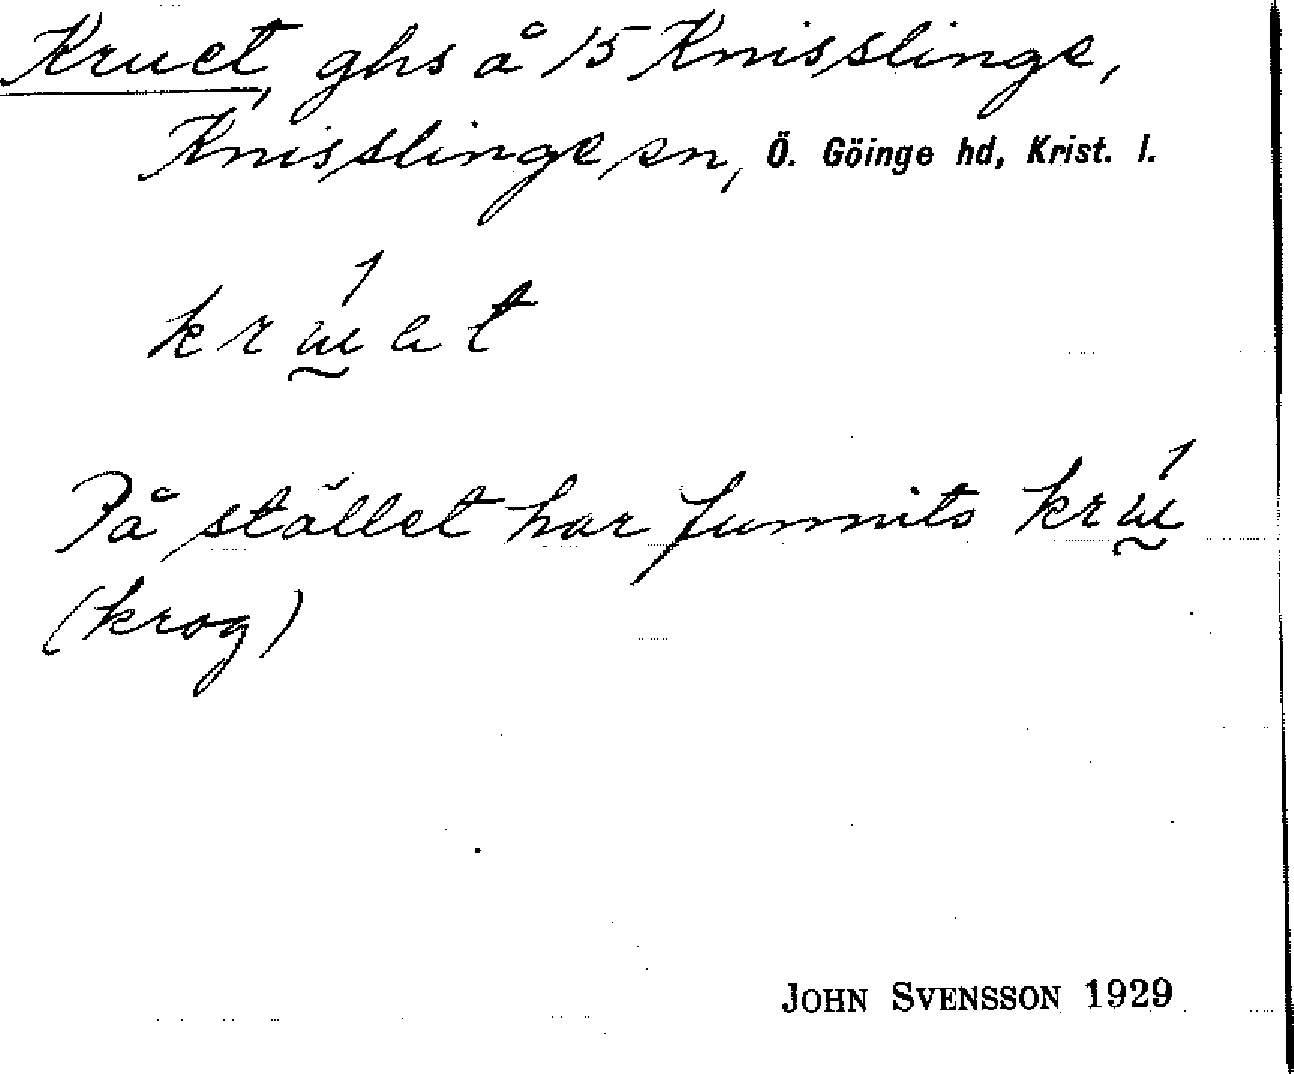 Kruet, ghs å 15 Knisslinge,
Knisslinge sn, Ö. Göinge hd, Krist. l.
krúat
På stället har funnits krú
(krog)
JOHN SVENSSON 1929